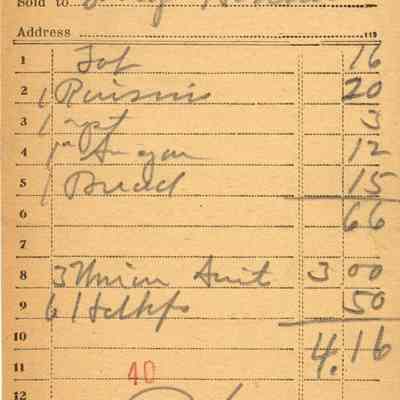 Sold to
Address 113
1 16
2 1 Raisins 20
3 1 3
4 1 Sugar 12
5 1 Bread 15
6 66
7
8 3 Union Suit 3 00
9 6 Hdkfs 50
10 4.16
11 40
12